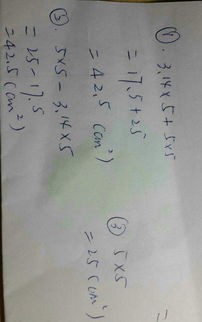 ① . 3.14×5+5×5
=17.5+25
=42.5 (cm²)
③ 5×5
=25(cm²)
5×5-3.14×5
=25-17.5
=42.5(cm²)